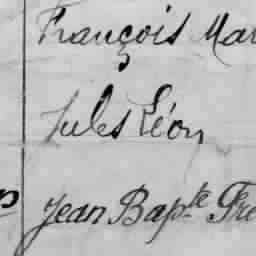 François Mar
Jules Léon
Jean Bapte Fre